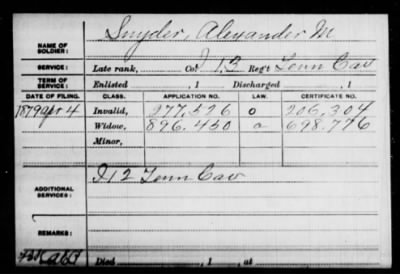 NAME OF SOLDIER: Snyder, Alexander M
SERVICE: Late rank, Co. I 13 Reg't Tenn Cav
TERM OF SERVICE: Enlisted , 1 Discharged , 1
DATE OF FILING. CLASS. APPLICATION NO. LAW. CERTIFICATE NO.
1879 Apr 4 Invalid, 277.526 o 206,304
Widow, 896.450 a 698.776
Minor,
ADDITIONAL SERVICES: I 12 Tenn Cav
REMARKS:
Died , 1 , at